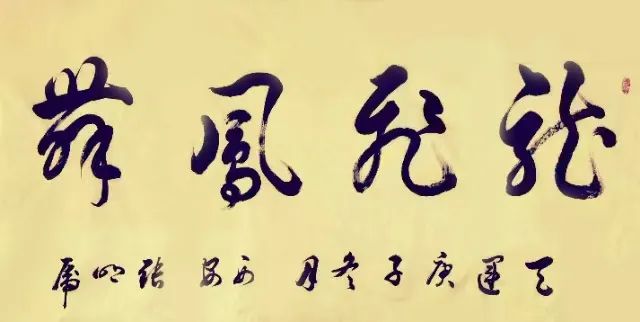 龍飛鳳舞
天運庚子冬月西安張明虎